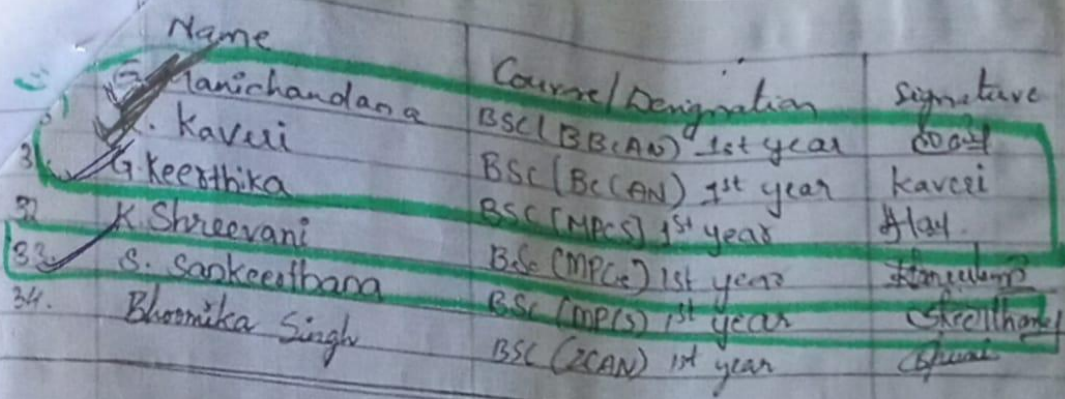 Name Course/Designation Signature
Manichandana BSC (BBCAN) 1st year
K. Kaveri BSC (BCCAN) 1st year Kaveri
3 G. Keerthika BSC (MPCS) 1st year
32 K. Shreevani BSC (MPCs) 1st year
33. S. Sankeerthana BSC (MPCS) 1st year
34. Bhoomika Singh BSC (ZCAN) 1st year